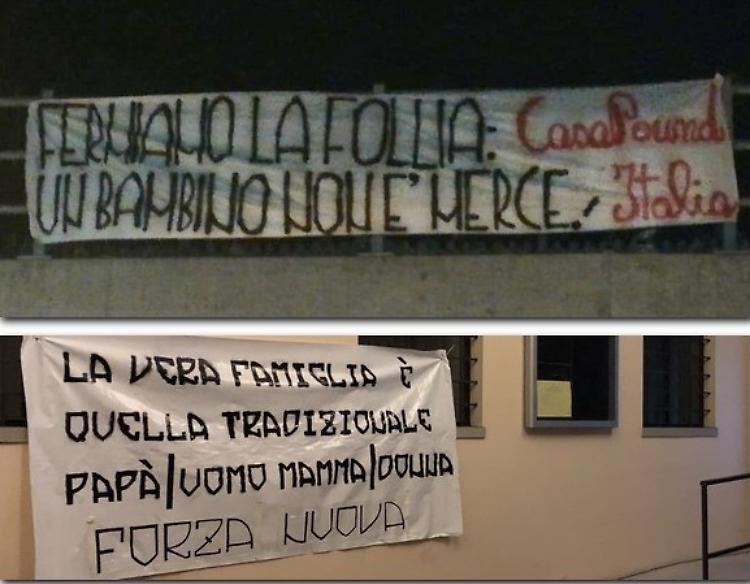 FERMIAMO LA FOLLIA: CasaPound
UN BAMBINO NON E' MERCE! Italia
LA VERA FAMIGLIA È
QUELLA TRADIZIONALE
PAPÀ|UOMO MAMMA|DONNA
FORZA NUOVA